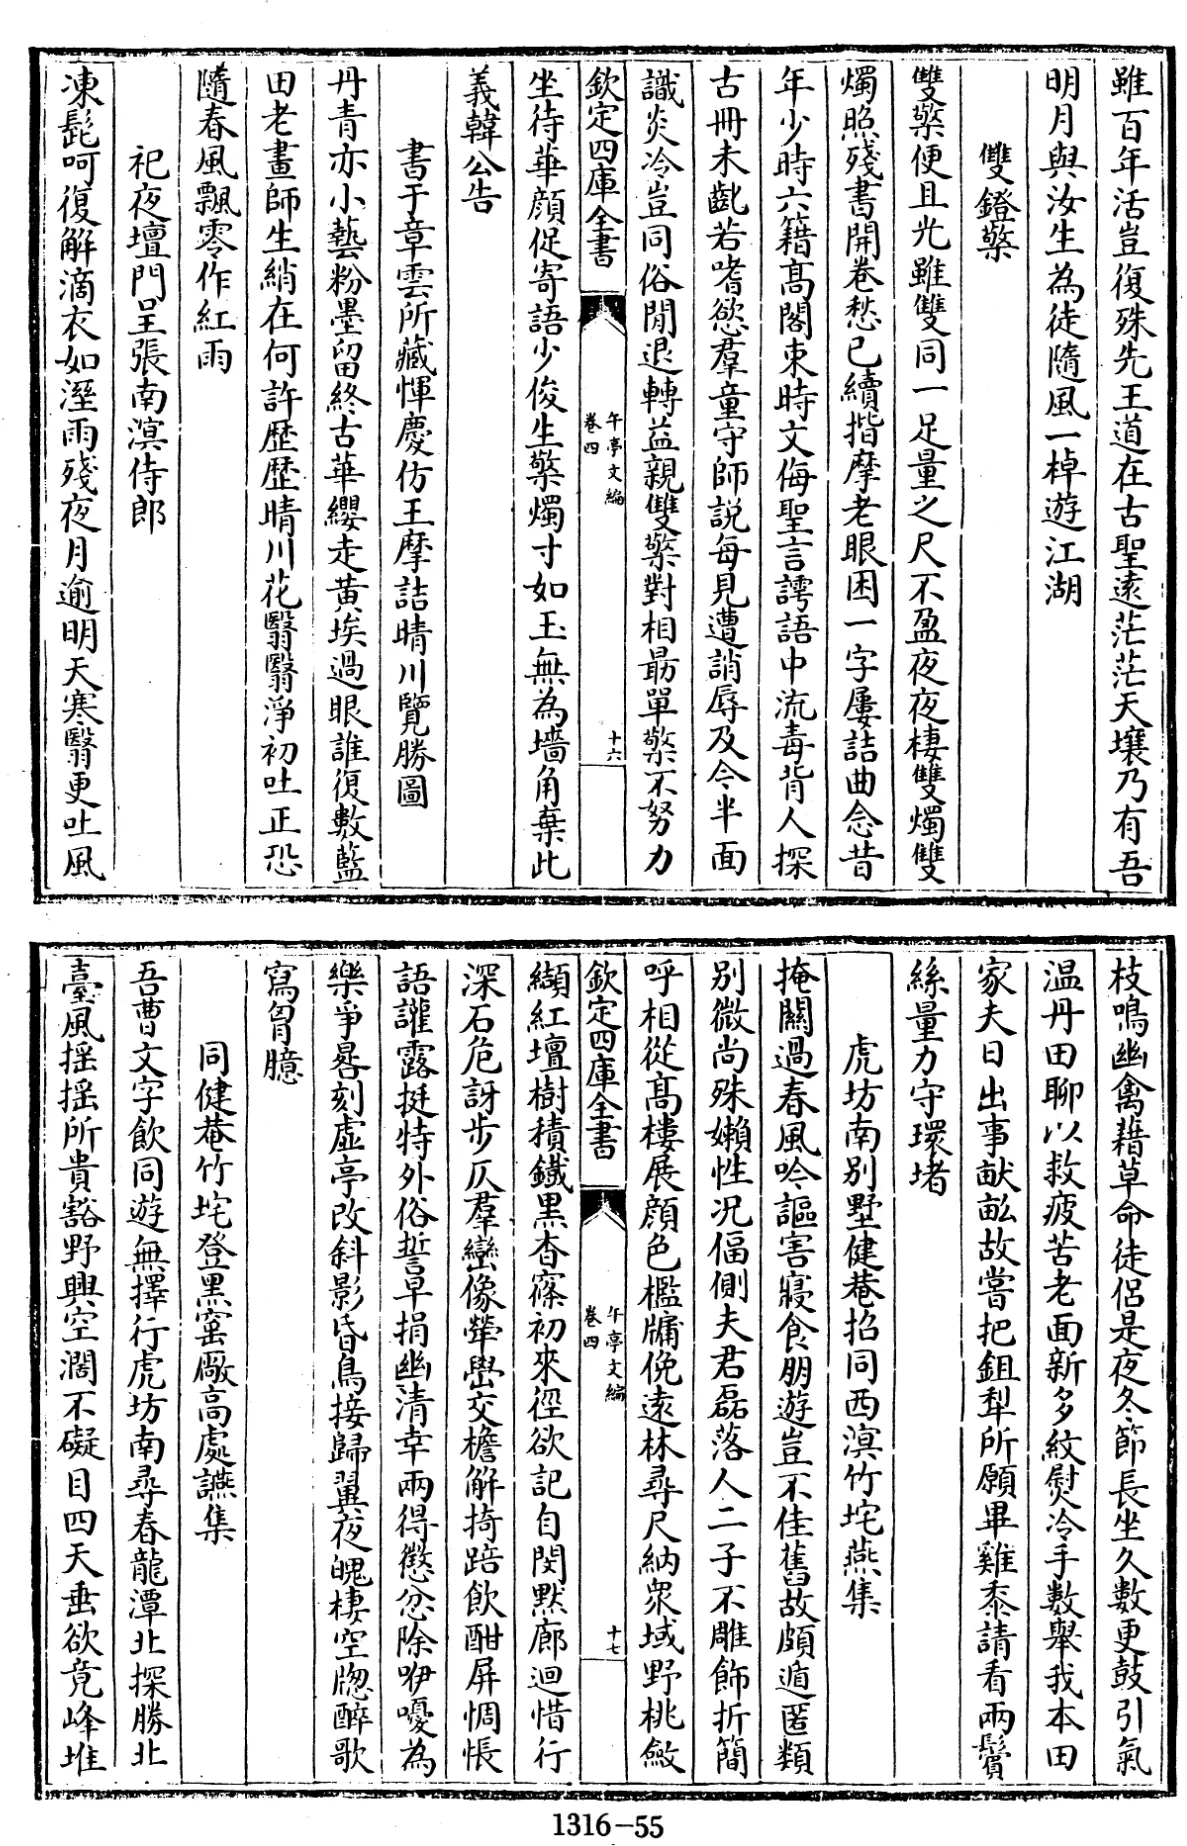 雖百年活豈復殊先王道在古聖遠茫茫天壤乃有吾
明月與汝生為徒隨風一棹遊江湖
雙鐙檠
雙檠便且光雖雙同一足量之尺不盈夜夜棲雙燭雙
燭照殘書開卷愁已續揩摩老眼困一字屢詰曲念昔
年少時六籍髙閣束時文侮聖言謣語中流毒背人探
古冊未齔若嗜慾羣童守師説每見遭誚辱及今半面
識炎冷豈同俗閒退轉益親雙檠對相勗單檠不努力
欽定四庫全書
午亭文編
卷四
十六
坐待華顔促寄語少俊生檠燭寸如玉無為墻角棄此
義韓公告
書于章雲所藏惲慶仿王摩詰晴川覽勝圖
丹青亦小藝粉墨留終古華纓走黄埃過眼誰復數藍
田老畫師生綃在何許歴歴晴川花翳翳淨初吐正恐
隨春風飄零作紅雨
祀夜壇門呈張南溟侍郎
凍髭呵復解滴衣如溼雨殘夜月逾明天寒翳更吐風
枝鳴幽禽藉草命徒侣是夜冬節長坐久數更鼓引氣
温丹田聊以救疲苦老面新多紋熨冷手數舉我本田
家夫日出事献畝故嘗把鉏犁所願畢雞黍請看兩鬢
絲量力守環堵
虎坊南别墅健菴招同西溟竹垞燕集
掩關過春風吟謳害寢食朋遊豈不佳舊故頗遁匿類
别微尚殊嬾性况偪側夫君磊落人二子不雕飾折簡
呼相從髙樓展顔色檻牗俛遠林尋尺納衆域野桃斂
欽定四庫全書
午亭文編
卷四
十七
纈紅壇樹積鐡黒杳窱初來徑欲記自閔默廊迴惜行
深石危訝步仄羣巒像犖嶨交檐解掎踣飲酣屏惆悵
語讙露挺特外俗誓早捐幽清幸兩得懲忿除咿嚘為
樂爭晷刻虚亭改斜影昏鳥接歸翼夜魄棲空牕醉歌
寫胷臆
同健菴竹垞登黒窰厰高處讌集
吾曹文字飲同遊無擇行虎坊南尋春龍潭北探勝北
臺風揺揺所貴豁野興空濶不礙目四天垂欲竟峰堆
1316—55